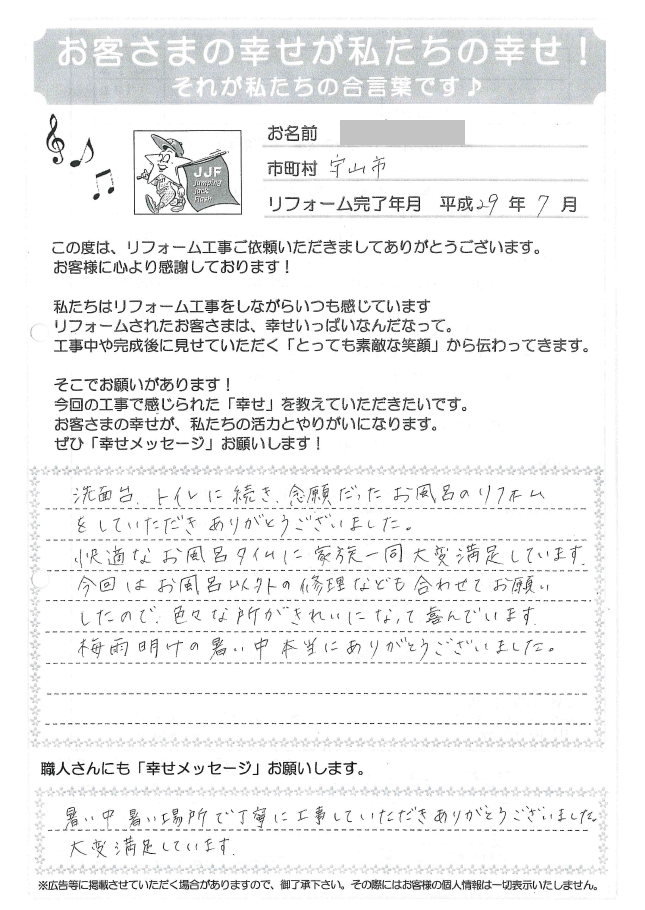 お客さまの幸せが私たちの幸せ！
それが私たちの合言葉です♪
お名前
市町村 守山市
リフォーム完了年月 平成29年7月
JJF
Jumping
Jack
Flash
この度は、リフォーム工事ご依頼いただきましてありがとうございます。
お客様に心より感謝しております！
私たちはリフォーム工事をしながらいつも感じています
リフォームされたお客さまは、幸せいっぱいなんだなって。
工事中や完成後に見せていただく「とっても素敵な笑顔」から伝わってきます。
そこでお願いがあります！
今回の工事で感じられた「幸せ」を教えていただきたいです。
お客さまの幸せが、私たちの活力とやりがいになります。
ぜひ「幸せメッセージ」お願いします！
洗面台、トイレに続き、念願だったお風呂のリフォーム
をしていただきありがとうございました。
快適なお風呂タイムに家族一同大変満足しています。
今回はお風呂以外の修理なども合わせてお願い
したので、色々な所がきれいになって喜んでいます。
梅雨明けの暑い中本当にありがとうございました。
職人さんにも「幸せメッセージ」お願いします。
暑い中暑い場所で丁寧に工事していただきありがとうございました。
大変満足しています。
※広告等に掲載させていただく場合がありますので、御了承下さい。その際にはお客様の個人情報は一切表示いたしません。